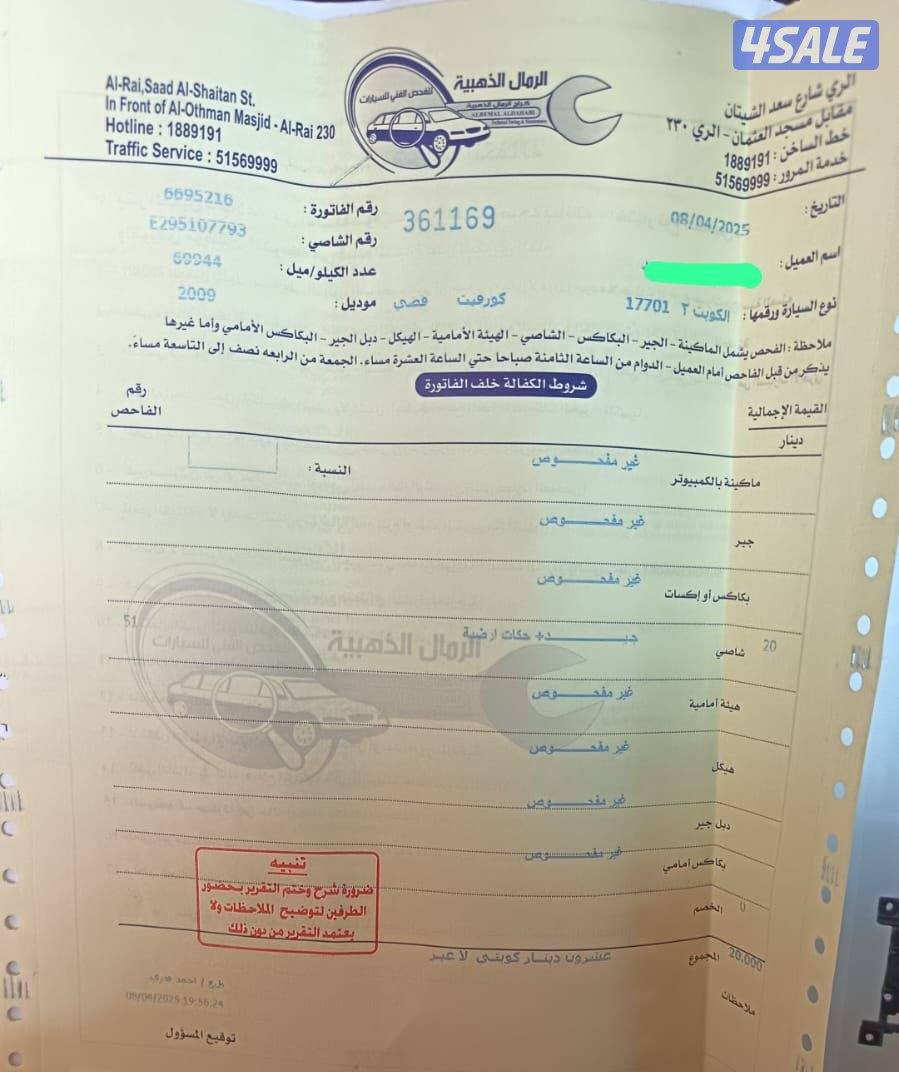 4SALE
Al-Rai,Saad Al-Shaitan St.
In Front of Al-Othman Masjid - Al-Rai 230
Hotline : 1889191
Traffic Service : 51569999
الرمال الذهبية
للفحص الفني للسيارات
كراج الرمال الذهبية
ALREMAL ALDAHABI
الري شارع سعد الشيتان
مقابل مسجد العثمان - الري ٢٣٠
خط الساخن : 1889191
خدمة المرور : 51569999
التاريخ : 08/04/2025
361169
رقم الفاتورة : 6695216
اسم العميل :
رقم الشاصي : E295107793
عدد الكيلو/ميل : 69944
نوع السيارة ورقمها : الكويت ٢ 17701 كورفيت فضي موديل : 2009
ملاحظة : الفحص يشمل الماكينة - الجير - البكاكس - الشاصي - الهيئة الأمامية - الهيكل - دبل الجير - البكاكس الأمامي وأما غيرها
يذكر من قبل الفاحص أمام العميل - الدوام من الساعة الثامنة صباحا حتي الساعة العشرة مساء. الجمعة من الرابعه نصف إلى التاسعة مساءً.
شروط الكفالة خلف الفاتورة
القيمة الإجمالية
دينار
رقم
الفاحص
ماكينة بالكمبيوتر غير مفحـــــوص النسبة :
جير غير مفحـــــوص
بكاكس أو إكسات غير مفحـــــوص
20 شاصي جيـــــد+ حكات ارضية 51
هيئة أمامية غير مفحـــــوص
هيكل غير مفحـــــوص
دبل جير غير مفحـــــوص
بكاكس امامي غير مفحـــــوص
0 الخصم
20.000 المجموع عشرون دينار كويتي لا غير
ملاحظات
الرمال الذهبية
تنبيه
ضرورة شرح وختم التقرير بحضور
الطرفين لتوضيح الملاحظات ولا
يعتمد التقرير من دون ذلك
08/04/2025 19:56:24
توقيع المسؤول